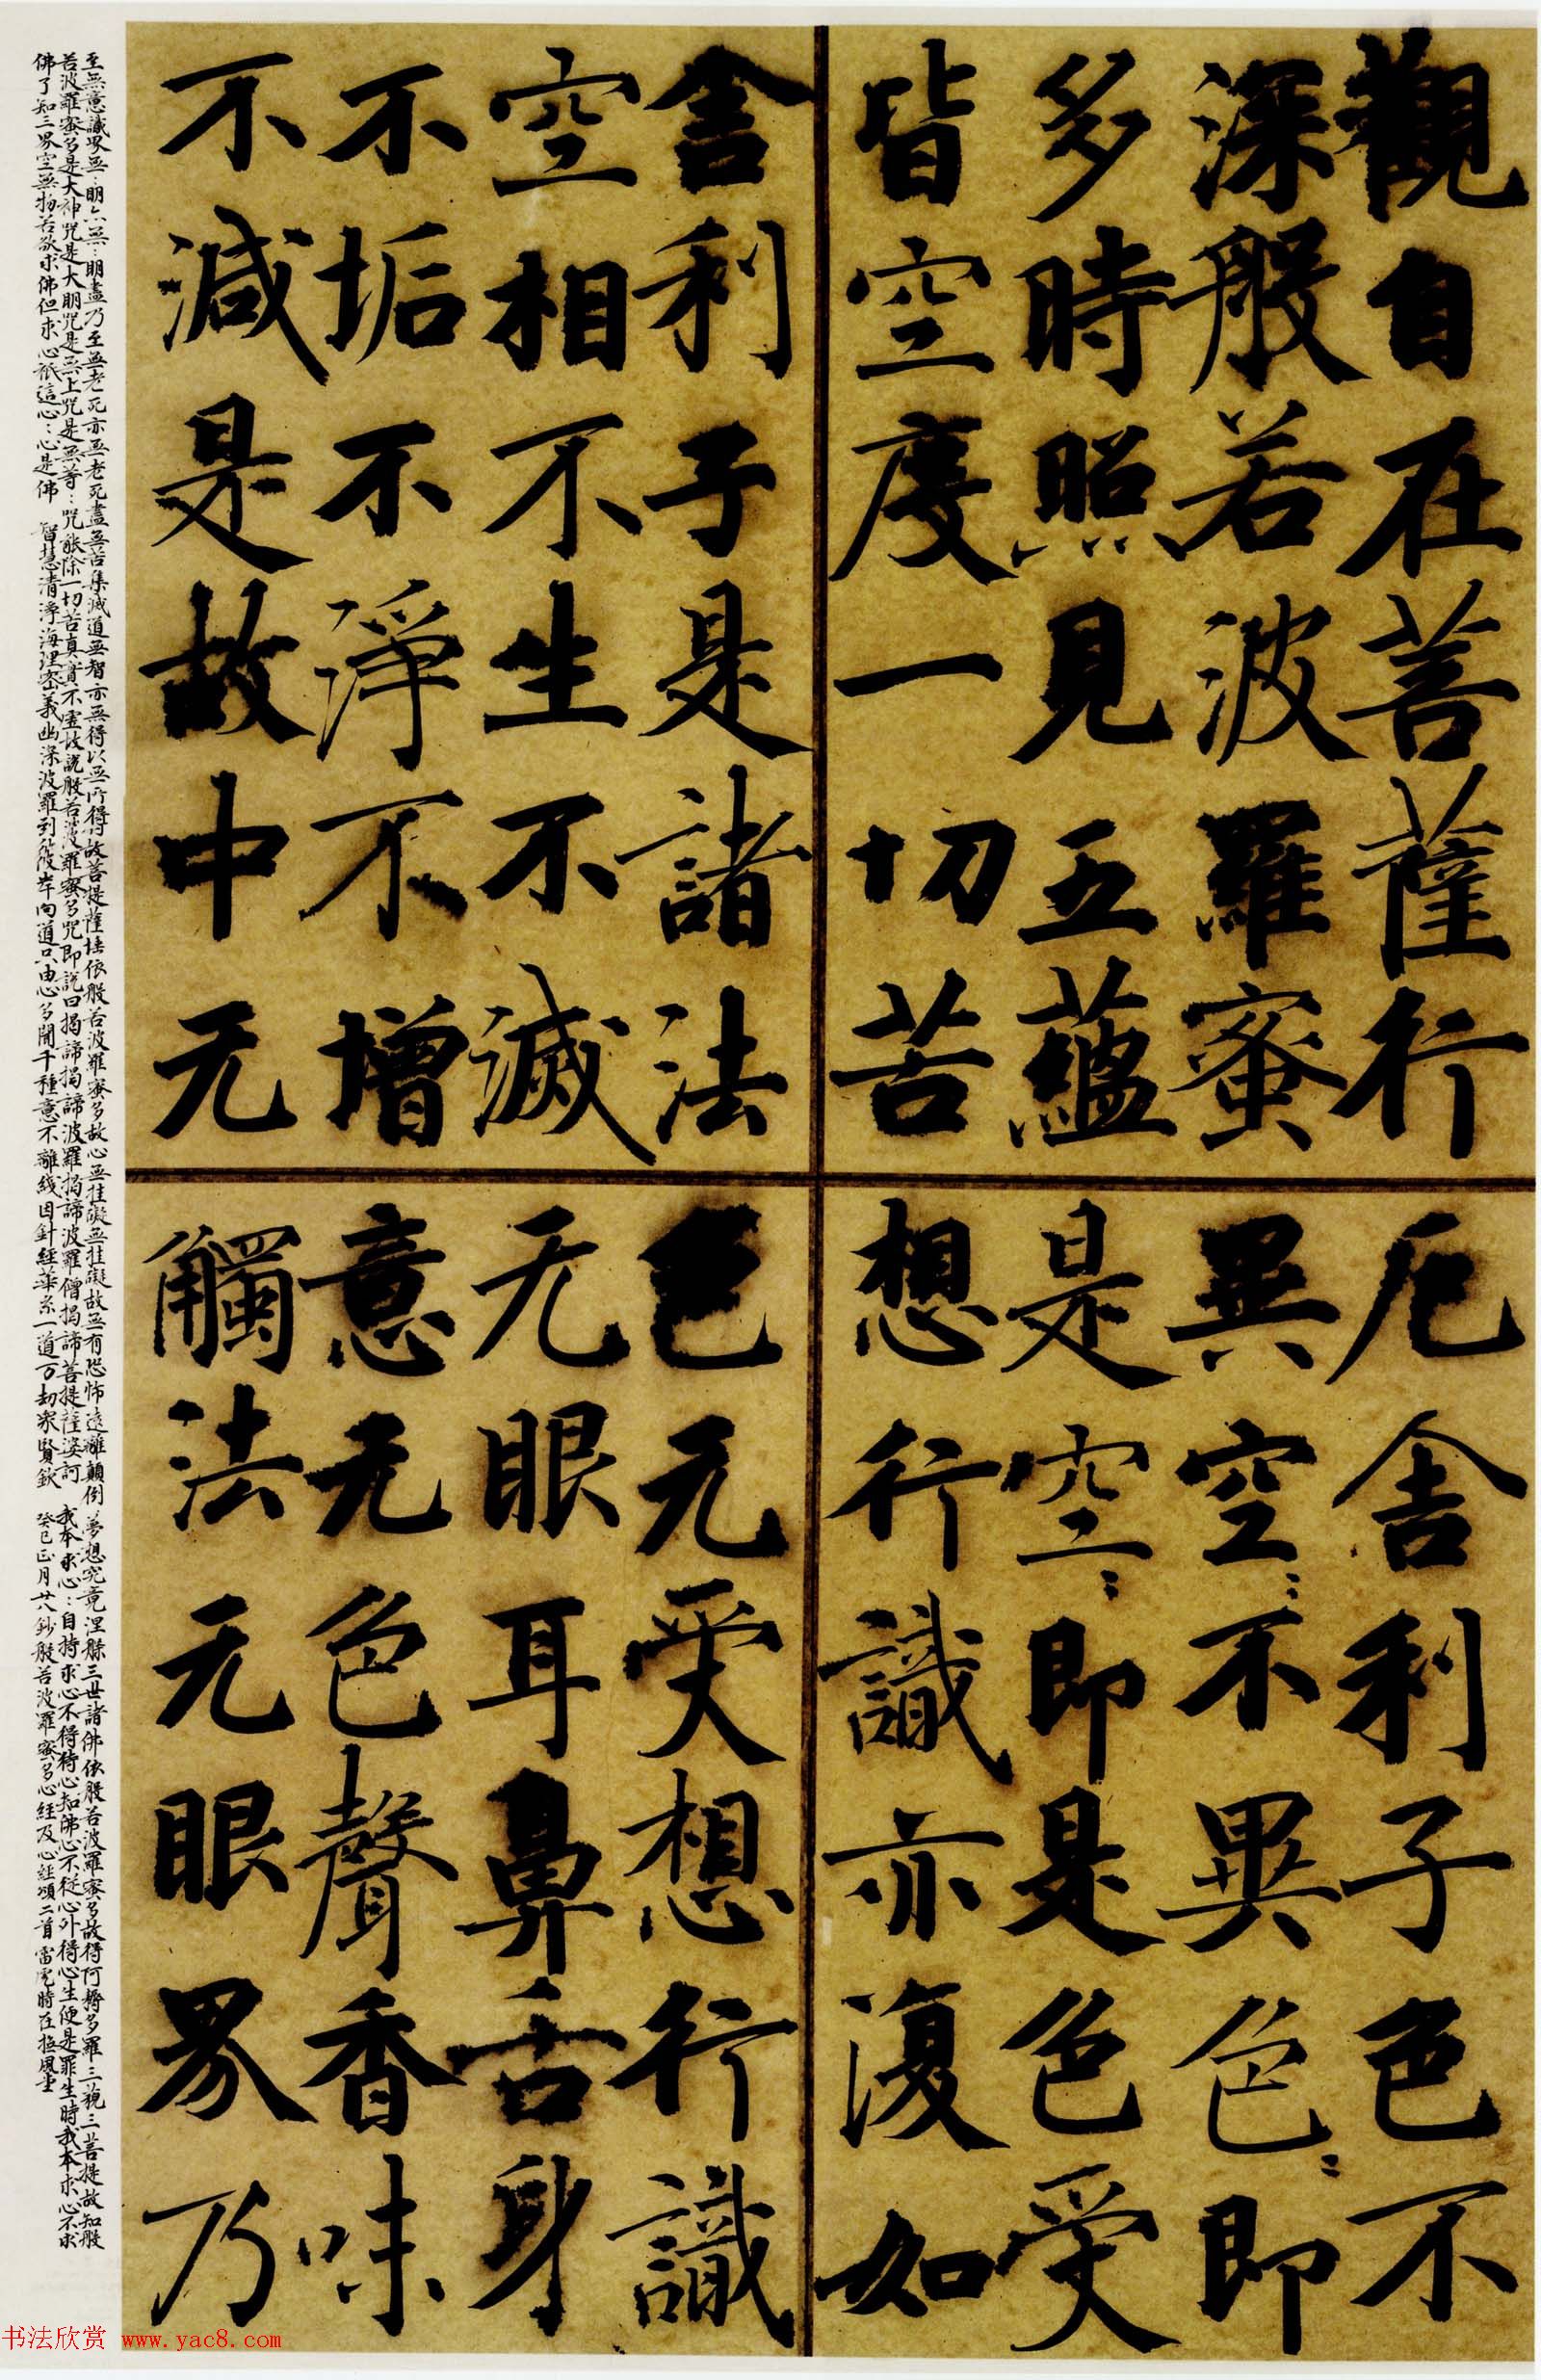 觀自在菩薩行
深般若波羅蜜
多時照見五蘊
皆空度一切苦
厄舍利子色不
異空:不異色:即
是空:即是色受
想行識亦復如
舍利子是諸法
空相不生不滅
不垢不淨不增
不減是故中无
色无受想行識
无眼耳鼻舌身
意无色聲香味
觸法无眼界乃
至無意識界無:明亦無:明盡乃至無老死亦無老死盡無苦集滅道無智亦無得以無所得故菩提薩埵依般若波羅蜜多故心無挂礙無挂礙故無有恐怖遠離顛倒夢想究竟涅槃三世諸佛依般若波羅蜜多故得阿耨多羅三藐三菩提故知般
若波羅蜜多是大神咒是大明咒是無上咒是無等:咒能除一切苦真實不虛故說般若波羅蜜多咒即說曰揭諦揭諦波羅揭諦波羅僧揭諦菩提薩婆訶 我本求心:自持求心不得待心知佛心不從心外得心生便是罪生時我本求心不求
佛了知三界空無物若欲求佛但求心祇這心:心是佛 智慧清淨海理密義幽深波羅到彼岸向道只由心多聞千種意不離綫因針經華糸一道万劫眾賢欽 癸巳正月廿八鈔般若波羅蜜多心經及心經頌二首 時在撫風堂
书法欣赏 www.yac8.com